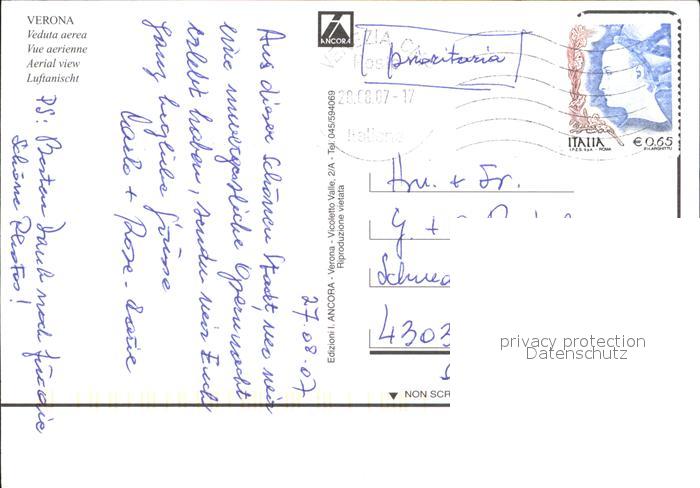 VERONA
Veduta aerea
Vue aerienne
Aerial view
Luftanischt
27.08.07
Aus dieser schönen Stadt, wo wir
eine unvergessliche Opernnacht
erlebt haben, senden wir Euch
ganz herzliche Grüsse
+ Rose-Marie
PS: Besten Dank noch für die
Schöne Photos!
ANCORA
Edizioni I. ANCORA - Verona - Vicoletto Valle, 2/A - Tel. 045/594069
Riproduzione vietata
prioritaria
VENEZIA
Pos
28.08.07-17
Italiane
ITALIA
€ 0,65
I.P.Z.S. S.p.A. - ROMA
Hr. + Fr.
G. +
4303
privacy protection
Datenschutz
▼ NON SCR